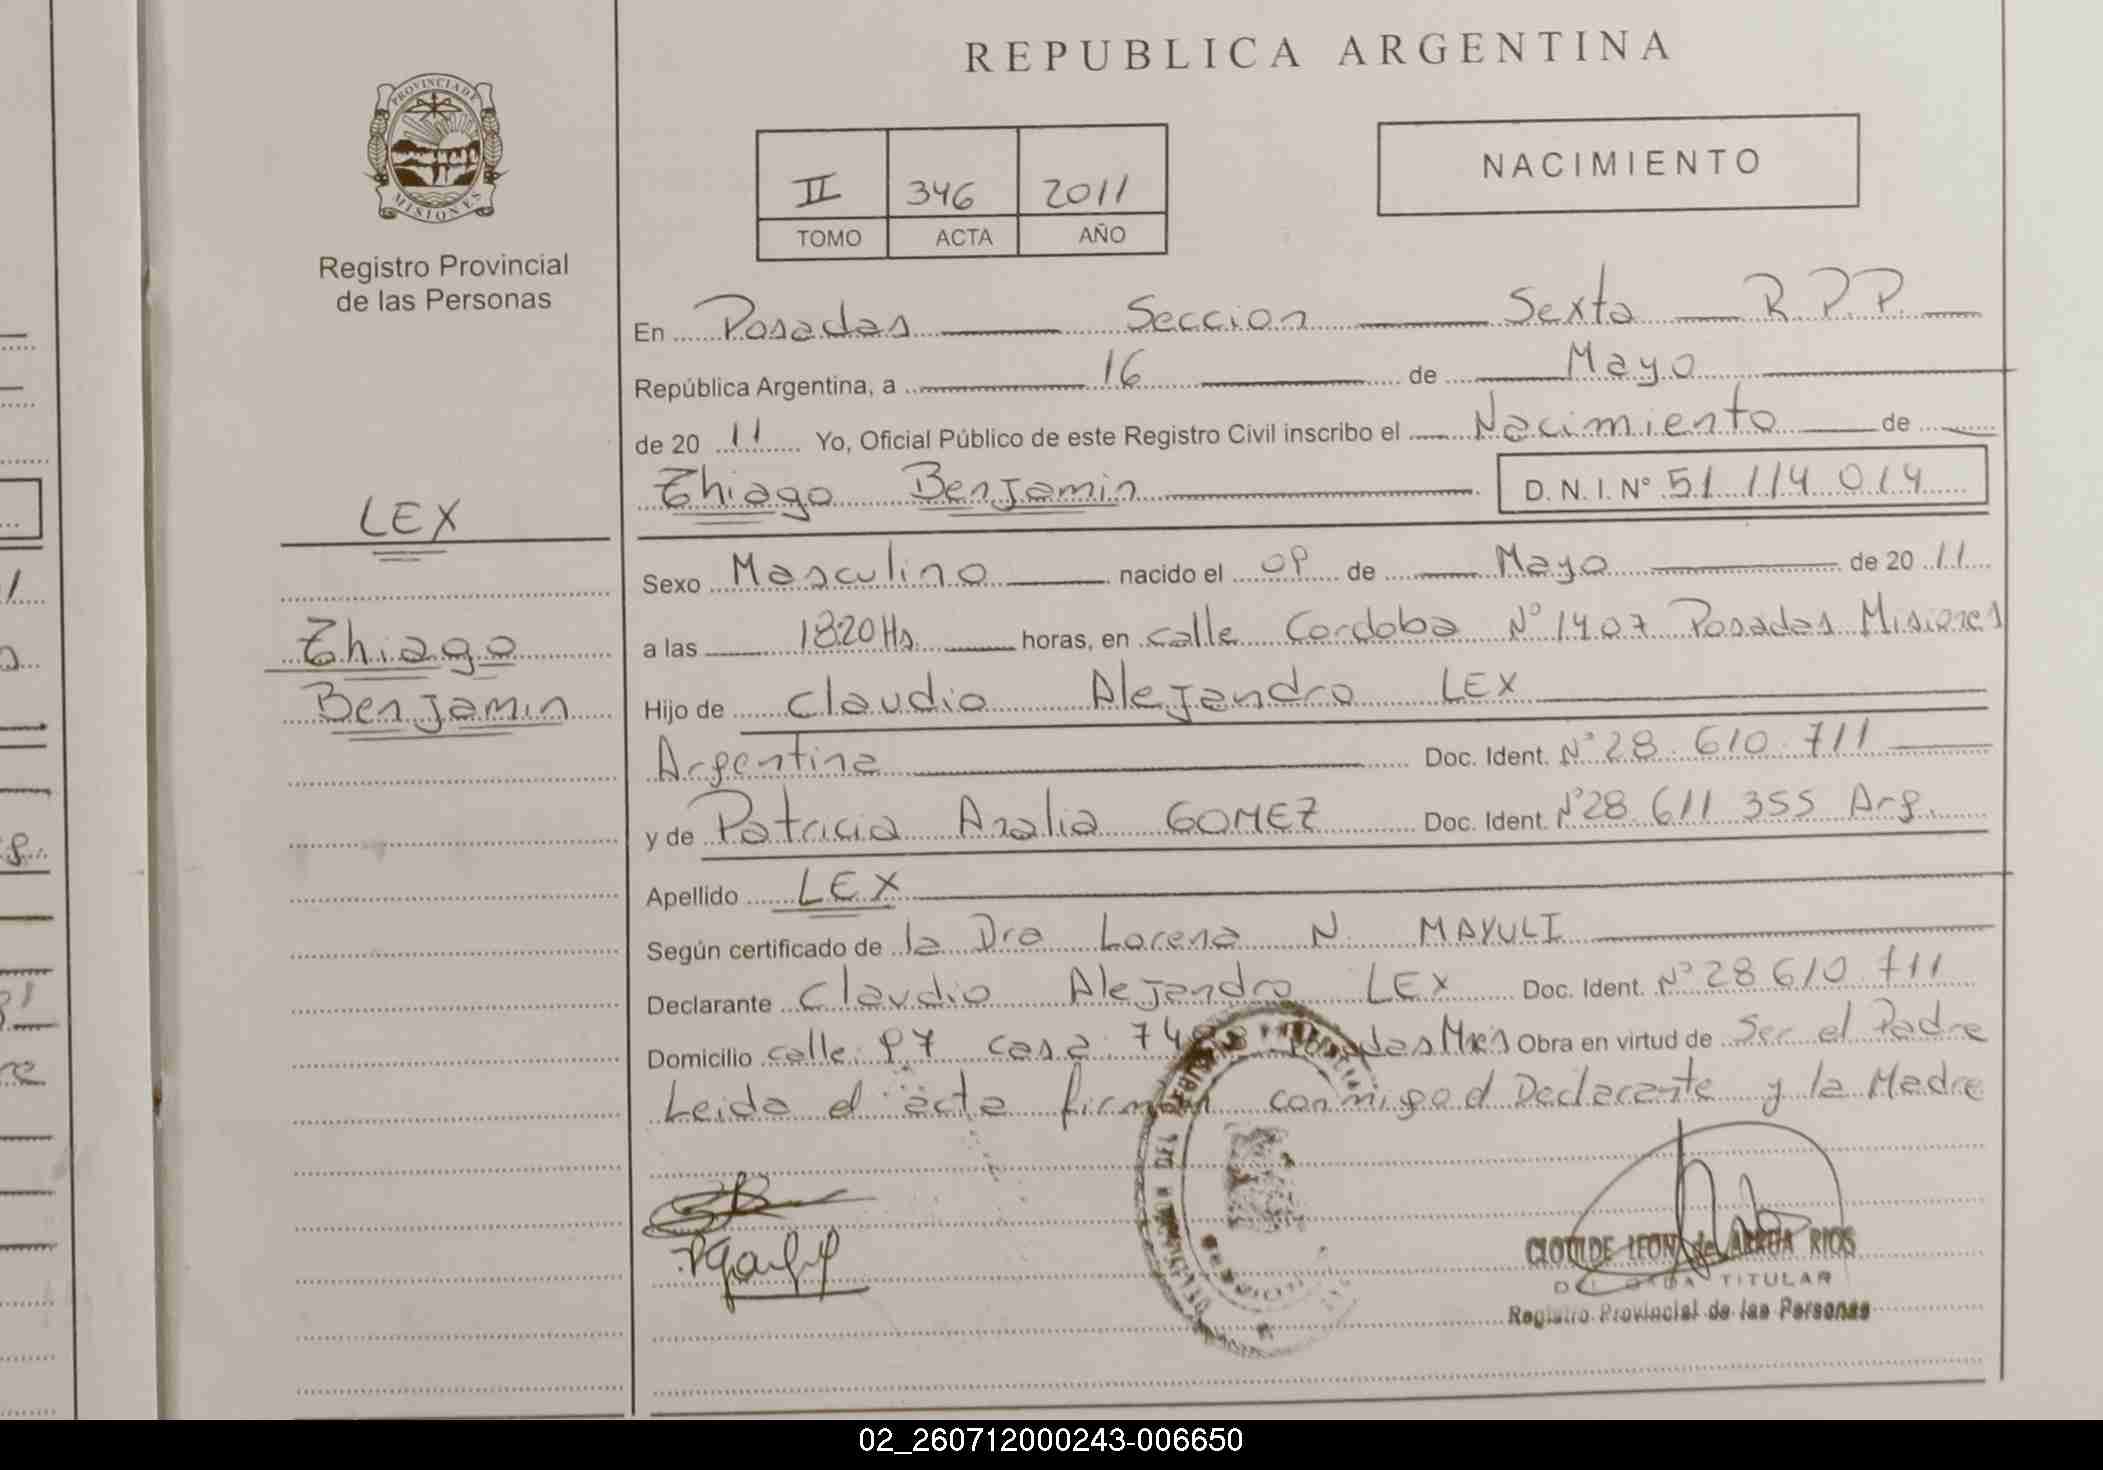 REPUBLICA ARGENTINA
PROVINCIA DE
MISIONES
Registro Provincial
de las Personas
II 346 2011
TOMO ACTA AÑO
NACIMIENTO
En Posadas Seccion Sexta R.P.P.
República Argentina, a 16 de Mayo
de 20 11 Yo, Oficial Público de este Registro Civil inscribo el Nacimiento de
Thiago Benjamin D. N. I. Nº 51 114 014
LEX
Thiago
Benjamin
Sexo Masculino nacido el 09 de Mayo de 20 11
a las 1820 Hs. horas, en calle Cordoba Nº 1407 Posadas Misiones
Hijo de Claudio Alejandro LEX
Argentina Doc. Ident. Nº 28 610 711
y de Patricia Analia GOMEZ Doc. Ident. Nº 28 611 355 Arg.
Apellido LEX
Según certificado de la Dra Lorena N. MAYULI
Declarante Claudio Alejandro LEX Doc. Ident. Nº 28 610 711
Domicilio calle 97 casa Obra en virtud de Ser el Padre
Leida el acta firman conmigo el Declarante y la Madre
CLOTILDE LEON de ARRUA RIOS
DELEGADA TITULAR
Registro Provincial de las Personas
02_260712000243-006650